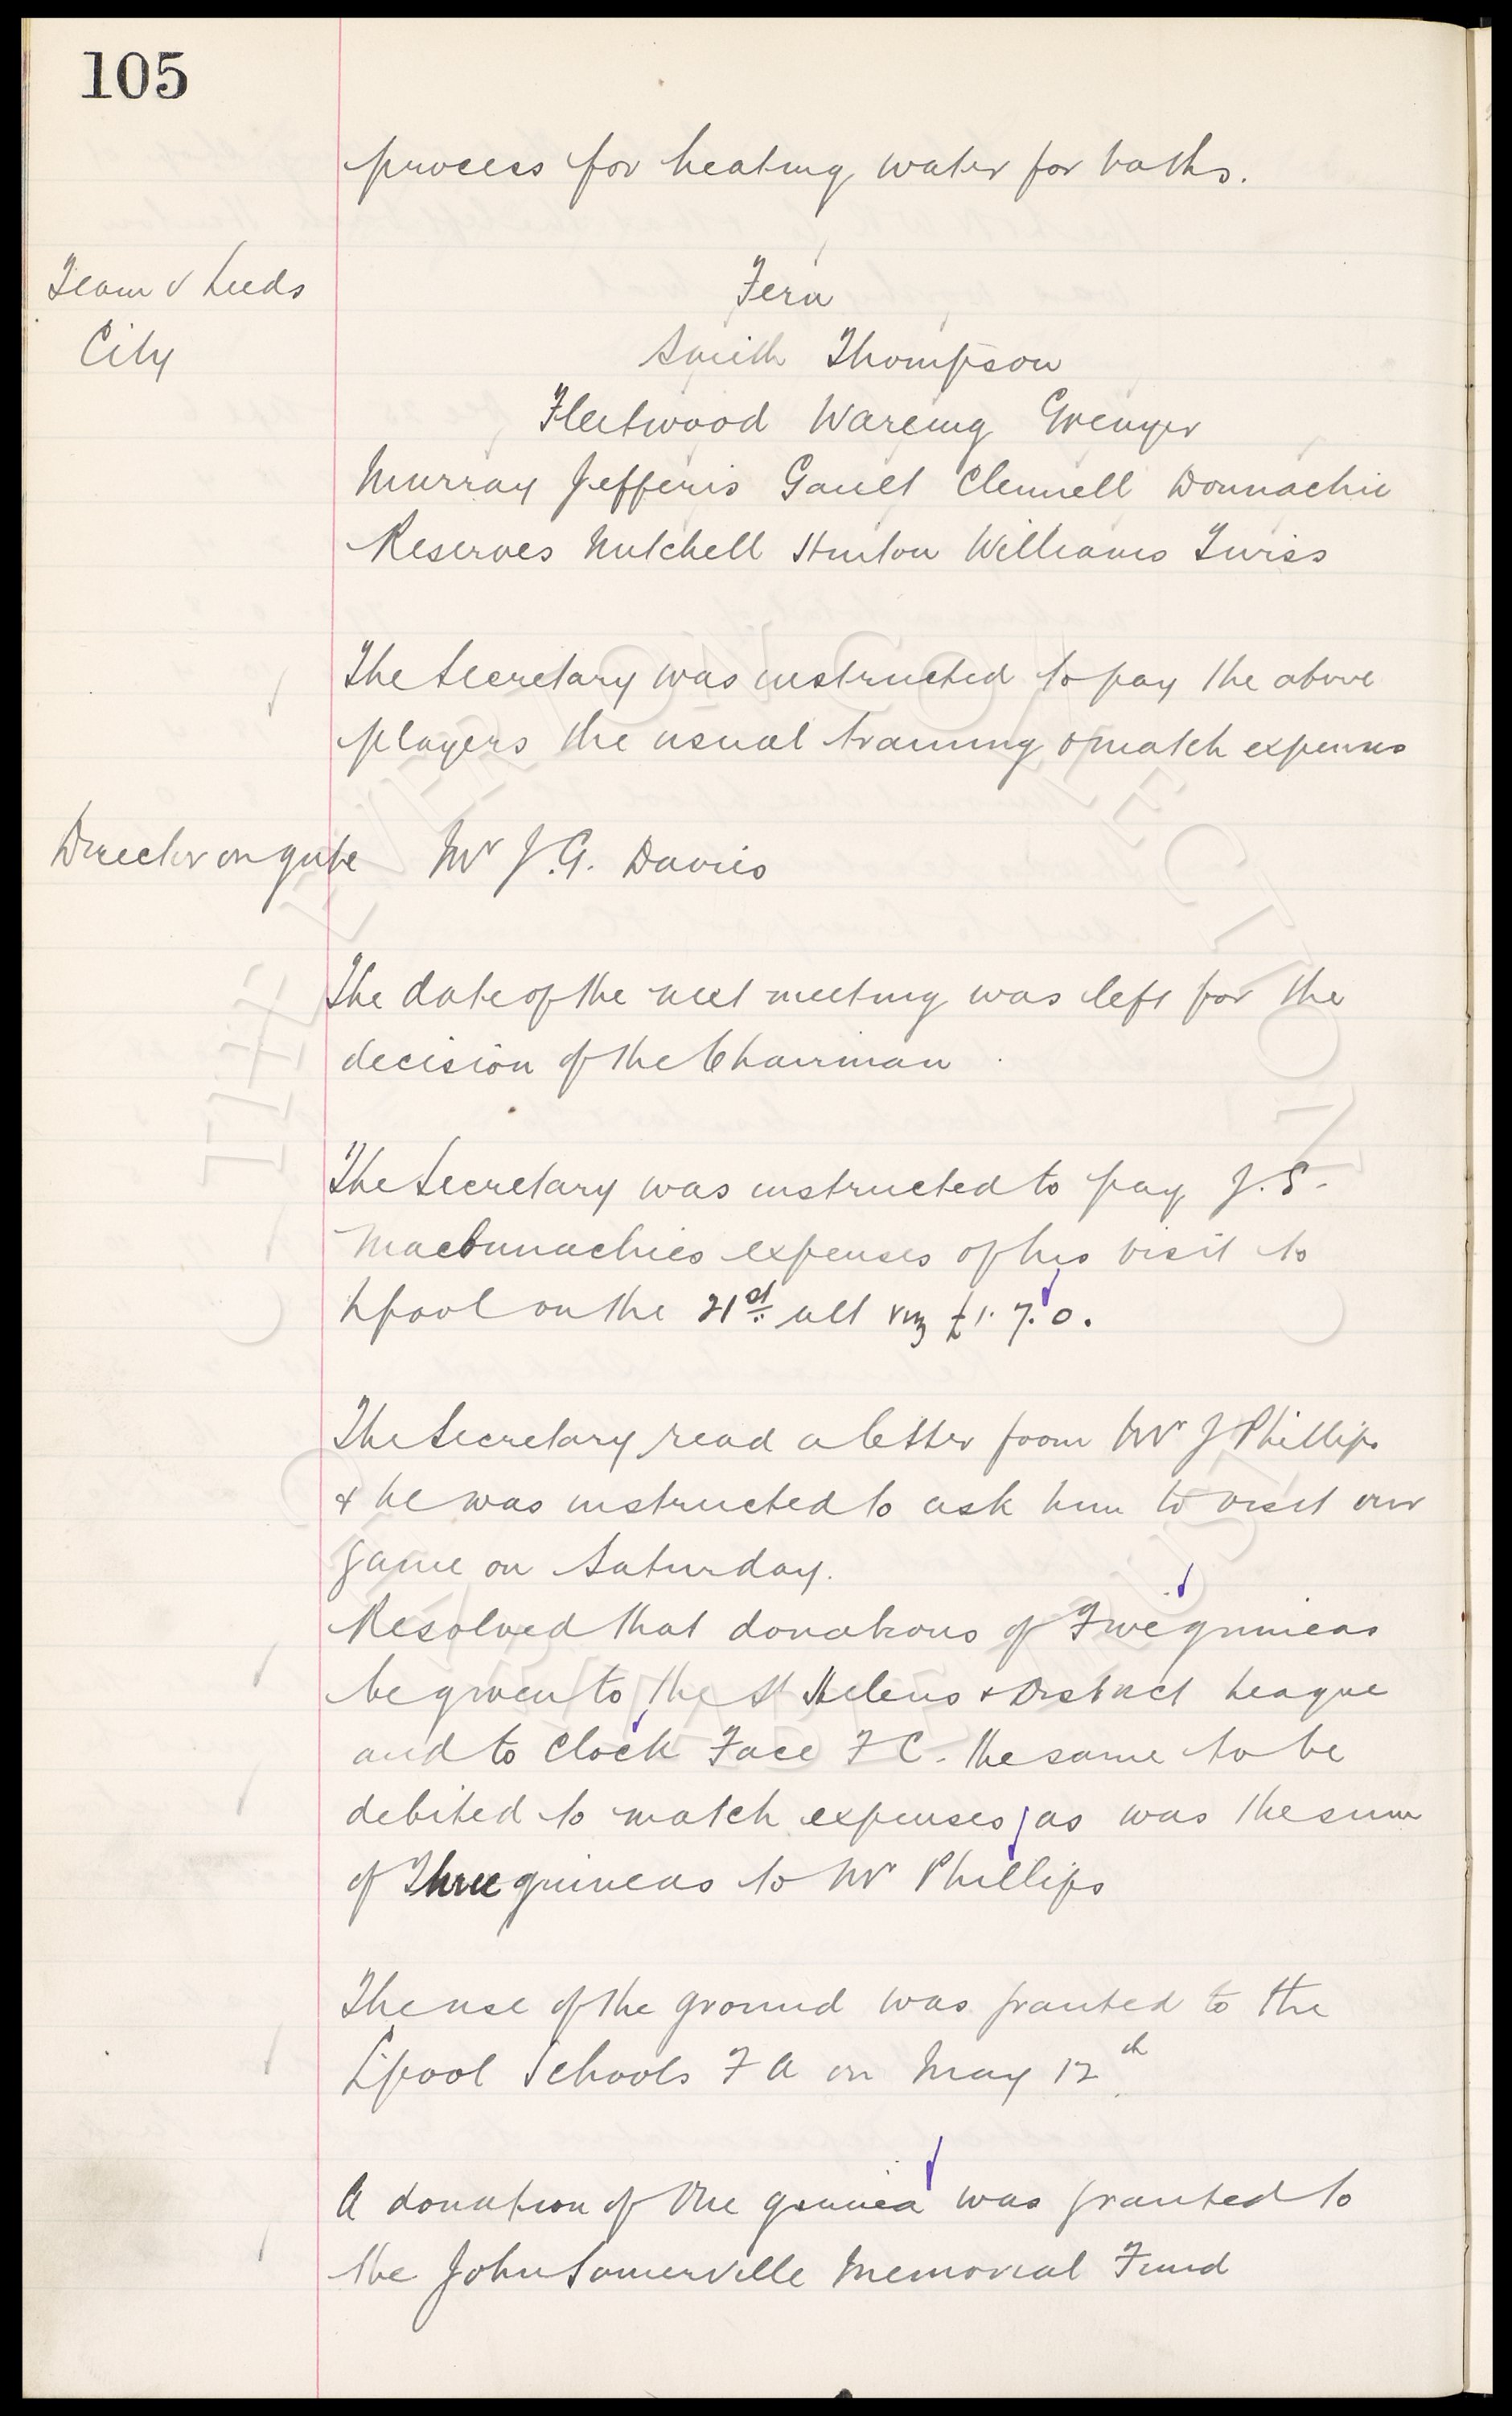 105
process for heating water for baths.
Team v Leeds
City
Fern
Smith Thompson
Fleetwood Wareing Grenyer
Murray Jefferis Gault Clennell Donnachie
Reserves Mitchell Hinton Williams Twiss
The Secretary was instructed to pay the above
players the usual training & match expenses
Director on gate Mr J.G. Davies
The date of the next meeting was left for the
decision of the Chairman
The Secretary was instructed to pay J.S.
Macconnachies expenses of his visit to
Lpool on the 21st ult viz £1. 7. 0.
The Secretary read a letter from Mr J Phillips
& he was instructed to ask him to visit our
game on Saturday.
Resolved that donations of Five guineas
be given to the St Helens & District League
and to Clock Face F C. the same to be
debited to match expenses as was the sum
of Three guineas to Mr Phillips
The use of the ground was granted to the
L'pool Schools F A on May 12th
A donation of One guinea was granted to
the John Somerville Memorial Fund
THE EVERTON COLLECTION